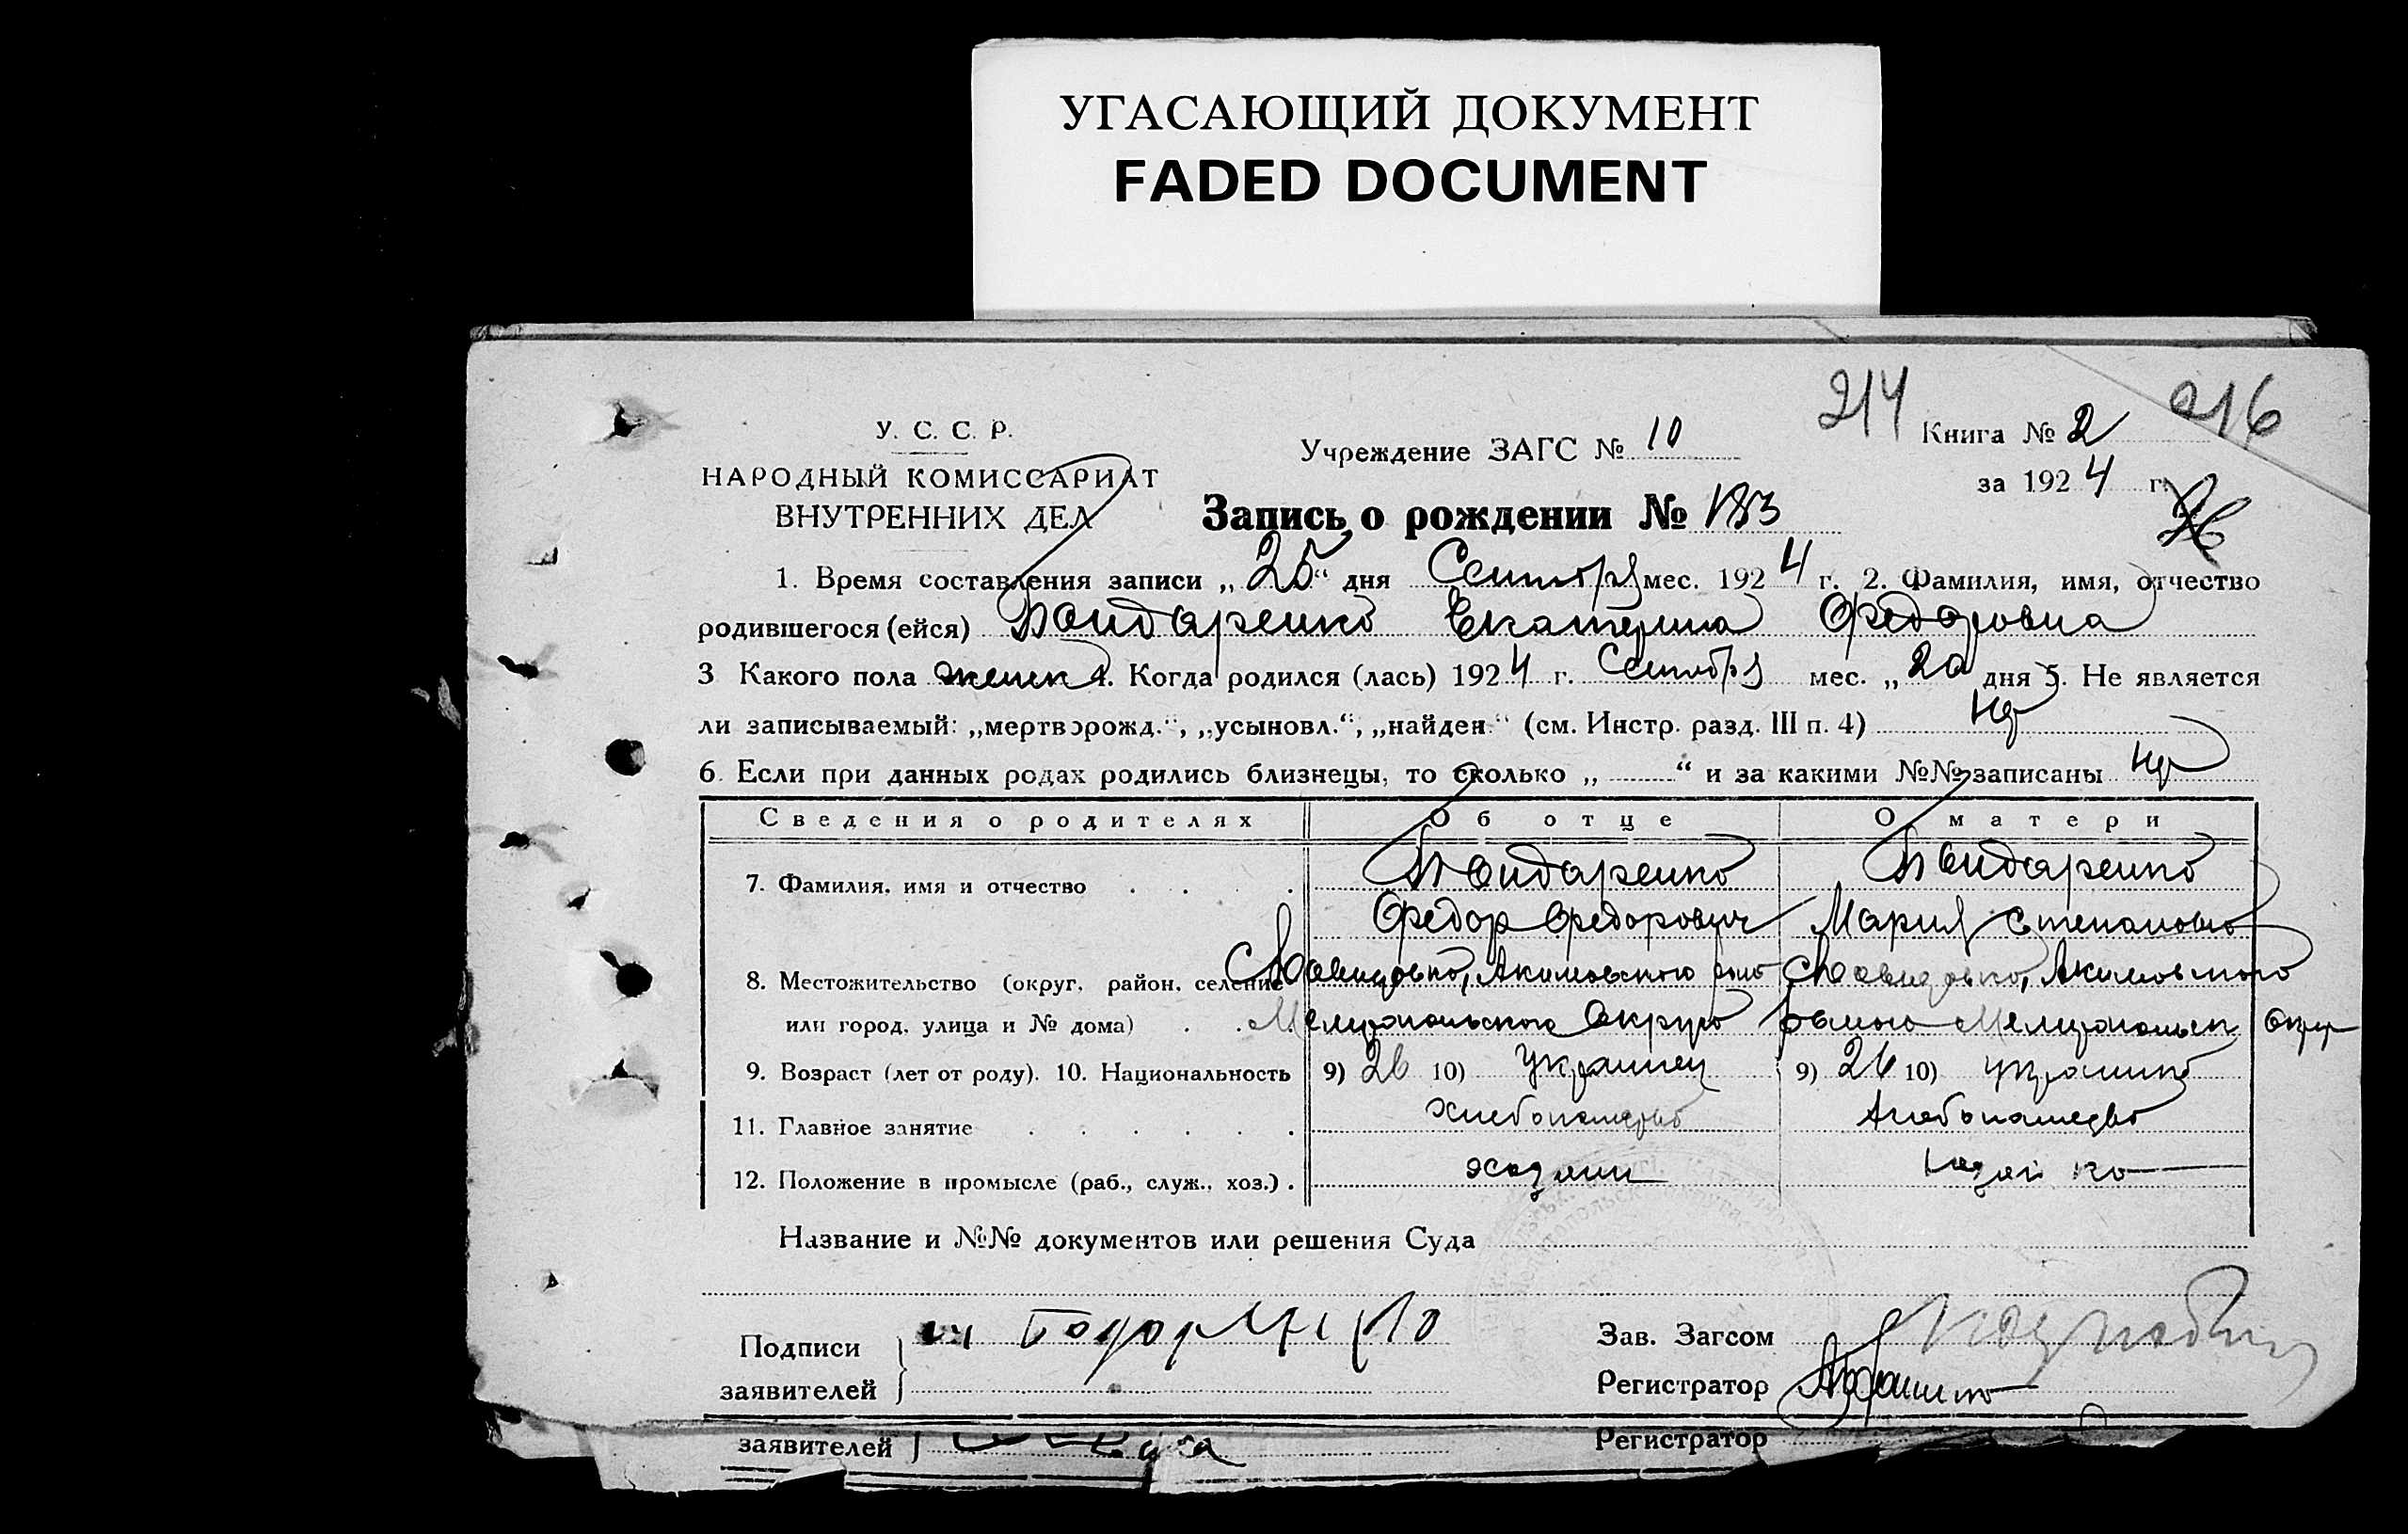 УГАСАЮЩИЙ ДОКУМЕНТ
FADED DOCUMENT
214 216
У. С. С. Р.
НАРОДНЫЙ КОМИССАРИАТ
ВНУТРЕННИХ ДЕЛ
Учреждение ЗАГС № 10
Книга № 2
за 1924 г.
Запись о рождении № 183
1. Время составления записи „25“ дня Сентября мес. 1924 г. 2. Фамилия, имя, отчество
родившегося (ейся) Бондаренко Екатерина Федоровна
3 Какого пола женск 4. Когда родился (лась) 1924 г. Сентября мес. „20 дня 5. Не является
ли записываемый: „мертворожд.“, „усыновл.“, „найден.“ (см. Инстр. разд. III п. 4) нет
6. Если при данных родах родились близнецы, то сколько „ “ и за какими №№ записаны нет
Сведения о родителях Об отце О матери
7. Фамилия, имя и отчество Бондаренко Бондаренко
Федор Федорович Мария Степановна
8. Местожительство (округ, район, селение С Давидовка, Акимовского С Давидовка, Акимовского
или город, улица и № дома) Мелитопольского Округа Мелитопольск Окр
9. Возраст (лет от роду). 10. Национальность 9) 26 10) Украинец 9) 26 10) украинка
11. Главное занятие Хлебопашество Хлебопашество
12. Положение в промысле (раб., служ., хоз.) хозяин хозяйка
Название и №№ документов или решения Суда
Подписи
заявителей
Зав. Загсом
Регистратор
заявителей
Регистратор